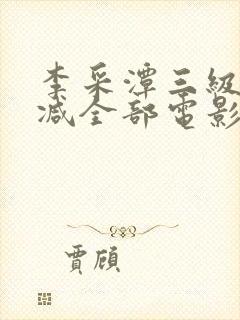 李采潭三級
减全部電影
賈頎